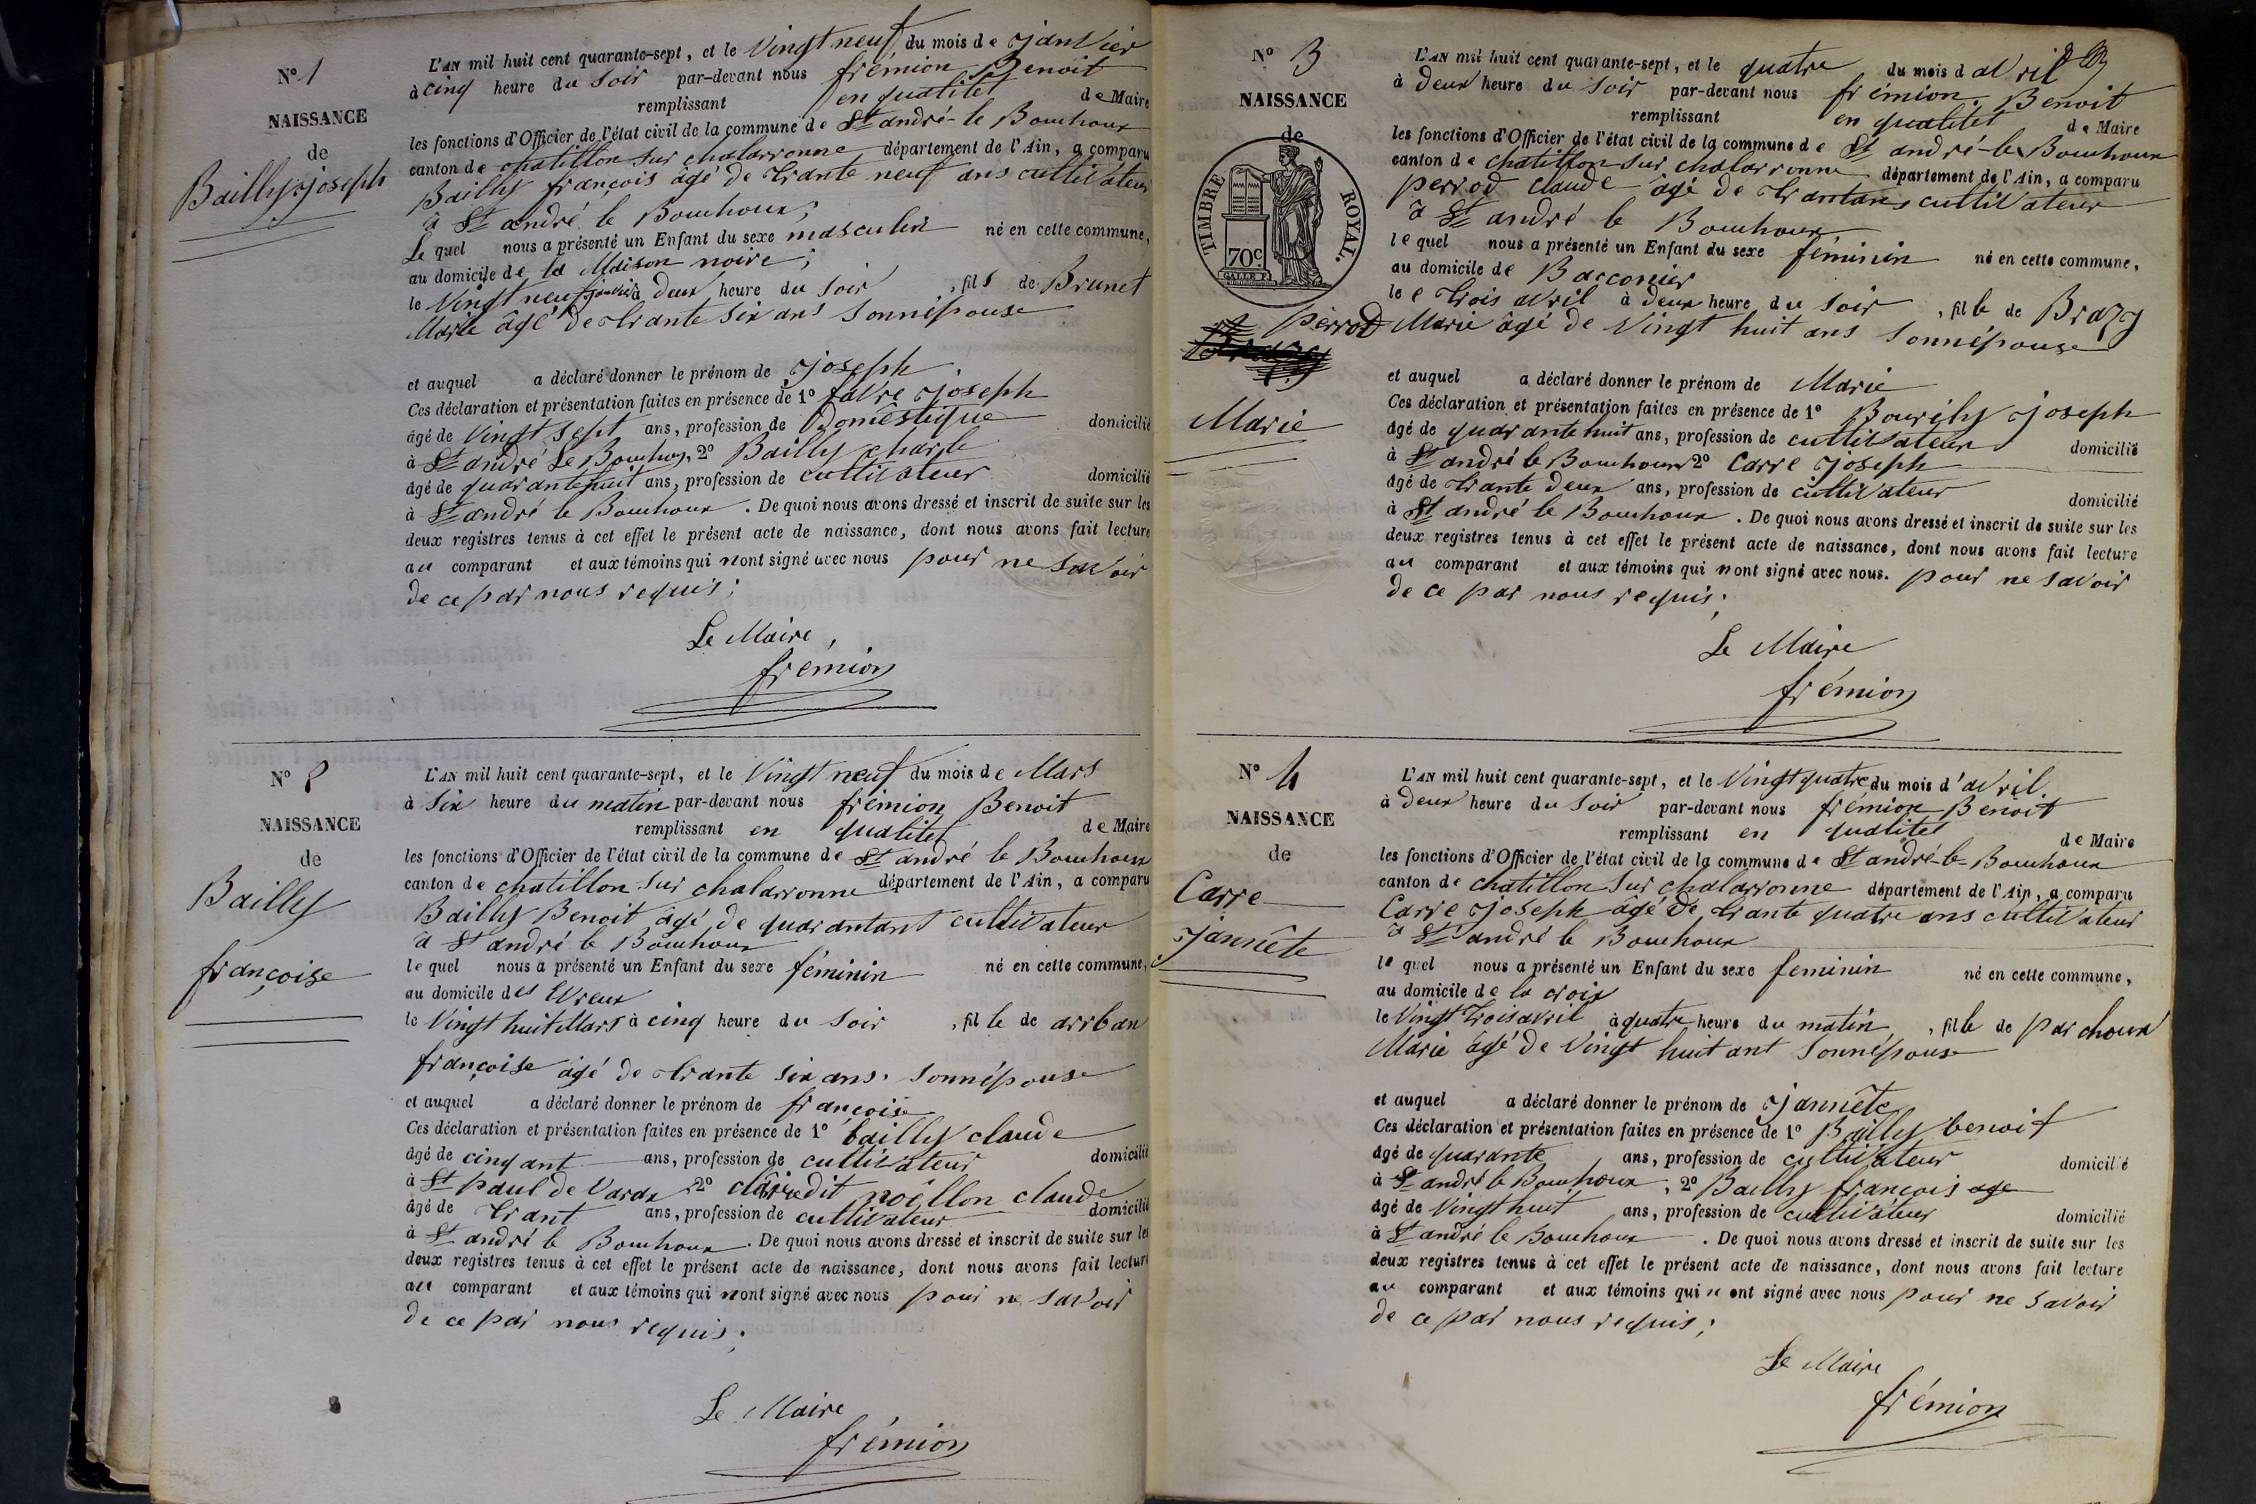 N° 1
NAISSANCE
de
Bailly joseph
L'AN mil huit cent quarante-sept, et le Vingt neuf du mois de janvier
à cinq heure du soir par-devant nous frémion Benoit
remplissant en qualitet de Maire
les fonctions d'Officier de l'état civil de la commune de St andré-le Bouchoux
canton de chatillon sur chalarronne département de l'Ain, a comparu
Bailly françois âgé de trante neuf ans cultivateur
à St andré le Bouchoux;
Le quel nous a présenté un Enfant du sexe masculin né en cette commune,
au domicile de la Maison noire;
le Vingt neuf janvier à deux heure du soir, fils de Brunet
Marie âgé de trante six ans sonnépouse
et auquel a déclaré donner le prénom de joseph
Ces déclaration et présentation faites en présence de 1° favre joseph
âgé de vingt sept ans, profession de Domestique domicilié
à St andré Le Bouchoux, 2° Bailly charle
âgé de quarante huit ans, profession de cultivateur domicilié
à St andré le Bouchoux. De quoi nous avons dressé et inscrit de suite sur les
deux registres tenus à cet effet le présent acte de naissance, dont nous avons fait lecture
au comparant et aux témoins qui nont signé avec nous pour ne savoir
de ce par nous requis;
Le Maire,
frémion
N° 2
NAISSANCE
de
Bailly
françoise
L'AN mil huit cent quarante-sept, et le Vingt neuf du mois de Mars
à six heure du matin par-devant nous frémion Benoit
remplissant en qualitet de Maire
les fonctions d'Officier de l'état civil de la commune de St andré le Bouchoux
canton de chatillon sur chalarronne département de l'Ain, a comparu
Bailly Benoit âgé de quarantans cultivateur
à St andré le Bouchoux
le quel nous a présenté un Enfant du sexe féminin né en cette commune,
au domicile des Evreux
le Vingt huit Mars à cinq heure du soir, fille de arban
françoise âgé de trante six ans. sonnépouse
et auquel a déclaré donner le prénom de françoise
Ces déclaration et présentation faites en présence de 1° bailly claude
âgé de cinqant ans, profession de cultivateur domicilié
à St paul de Varax 2° dit noëllon claude
âgé de trant ans, profession de cultivateur domicilié
à St andré le Bouchoux. De quoi nous avons dressé et inscrit de suite sur les
deux registres tenus à cet effet le présent acte de naissance, dont nous avons fait lecture
au comparant et aux témoins qui nont signé avec nous pour ne savoir
de ce par nous requis;
Le Maire
frémion
N° 3
NAISSANCE
de
TIMBRE ROYAL.
70c.
perrod
Marie
L'AN mil huit cent quarante-sept, et le quatre du mois d avril
à deux heure du soir par-devant nous frémion Benoit
remplissant en qualitet de Maire
les fonctions d'Officier de l'état civil de la commune de St andré-le Bouchoux
canton de chatillon sur chalarronne département de l'Ain, a comparu
perrod claude âgé de trantans cultivateur
à St andré le Bouchoux
le quel nous a présenté un Enfant du sexe féminin né en cette commune,
au domicile de Bacconier
le e trois avril à deux heure du soir, fille de Brazy
Marie âgé de Vingt huit ans sonnépouse
et auquel a déclaré donner le prénom de Marie
Ces déclaration et présentation faites en présence de 1° joseph
âgé de quarante huit ans, profession de cultivateur domicilié
à St andré le Bouchoux 2° Carre joseph
âgé de trante deux ans, profession de cultivateur domicilié
à St andré le Bouchoux. De quoi nous avons dressé et inscrit de suite sur les
deux registres tenus à cet effet le présent acte de naissance, dont nous avons fait lecture
au comparant et aux témoins qui nont signé avec nous. pour ne savoir
de ce par nous requis;
Le Maire
frémion
N° 4
NAISSANCE
de
Carre
jannête
L'AN mil huit cent quarante-sept, et le Vingt quatre du mois d'avril.
à deux heure du soir par-devant nous frémion Benoit
remplissant en qualitet de Maire
les fonctions d'Officier de l'état civil de la commune de St andré-le-Bouchoux
canton de chatillon sur chalarronne département de l'Ain, a comparu
Carre joseph âgé de trante quatre ans cultivateur
à St andré le Bouchoux
le quel nous a présenté un Enfant du sexe feminin né en cette commune,
au domicile de la croix
le Vingt trois avril à quatre heure du matin, fille de par choux
Marie âgé de Vingt huit ant sonnépouse
et auquel a déclaré donner le prénom de jannête
Ces déclaration et présentation faites en présence de 1° Bailly benoit
âgé de quarante ans, profession de cultivateur domicilié
à St andré le Bouchoux, 2° Bailly françois age
âgé de Vingt huit ans, profession de cultivateur domicilié
à St andré le Bouchoux. De quoi nous avons dressé et inscrit de suite sur les
deux registres tenus à cet effet le présent acte de naissance, dont nous avons fait lecture
au comparant et aux témoins qui n ont signé avec nous pour ne savoir
de ce par nous requis;
Le Maire
frémion